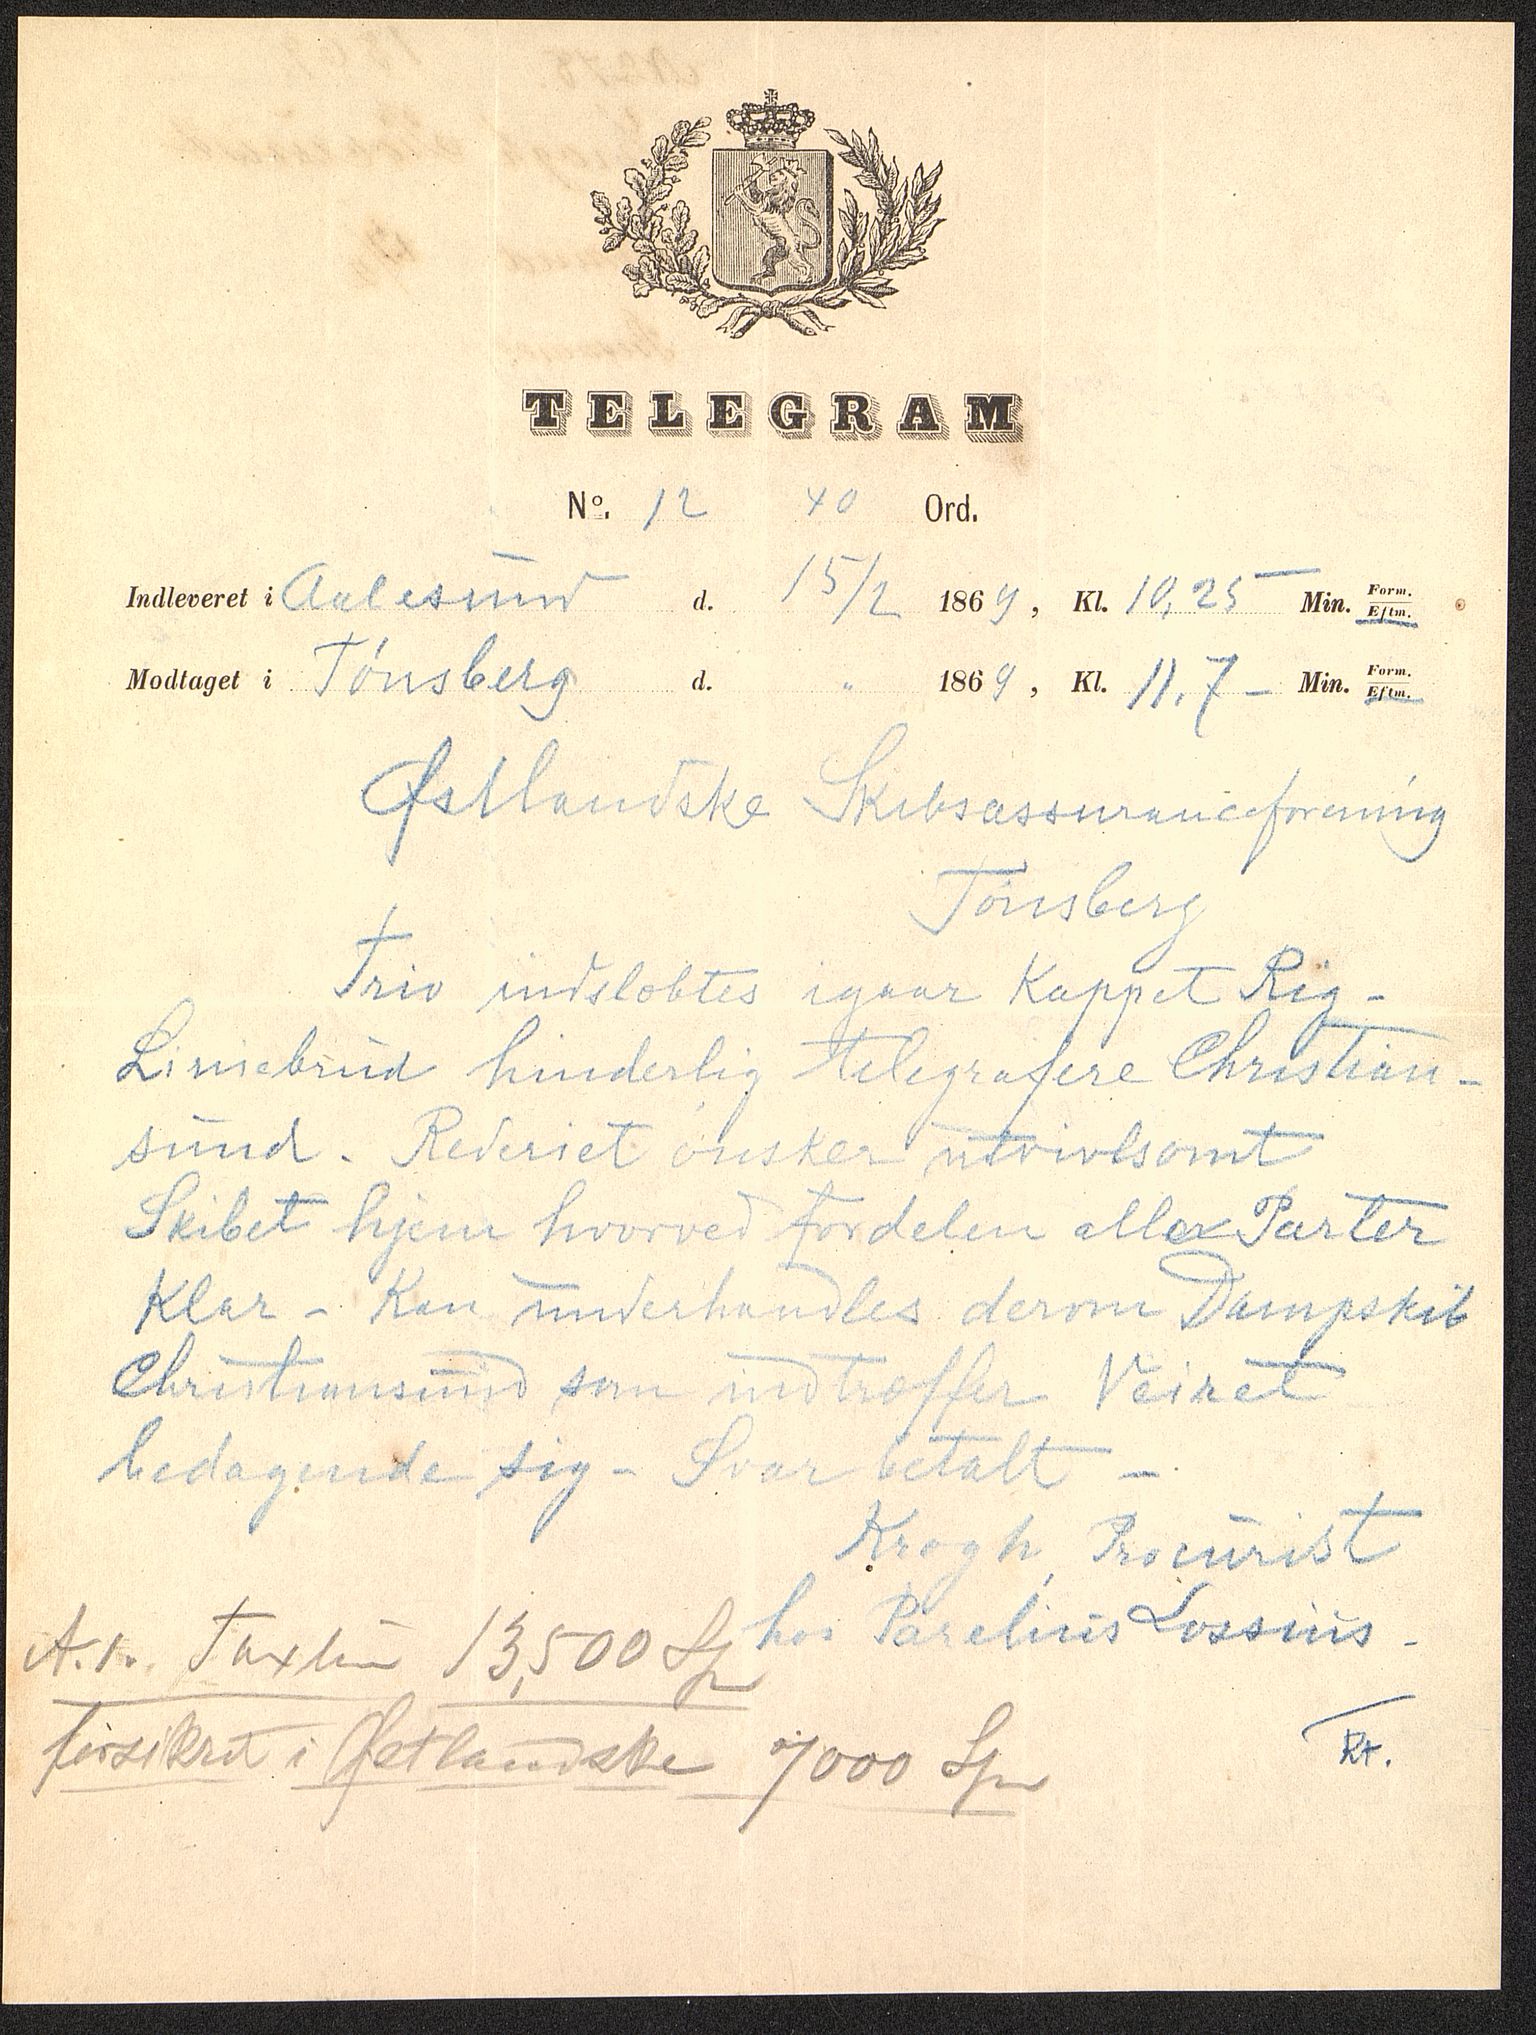 TELEGRAM
No. 12 40 Ord.
Indleveret i Aalesund d. 15/2 1869, Kl. 10,25 Min. Form. Eftm.
Modtaget i Tönsberg d. " 1869, Kl. 11.7 – Min. Form. Eftm.
Østlandske Skibsassuranceforening
Tönsberg
Trio indslæbtes igaar Kappet Rig –
Liniebrud hinderlig telegrafere Christian –
sund – Rederiet önsker utvivlsomt
Skibet hjem hvorved fordelen alle Parter
Klar – Kan underhandles derom Dampskib
Christiansund som indtræffer Veiret
bedagende sig – Svar betalt –
Krogh, Procurist
hos Parelius Lossius –
A. 1. Taxtin 13,500 Sp
forsikret i Østlandske 7000 Sp
Kt.